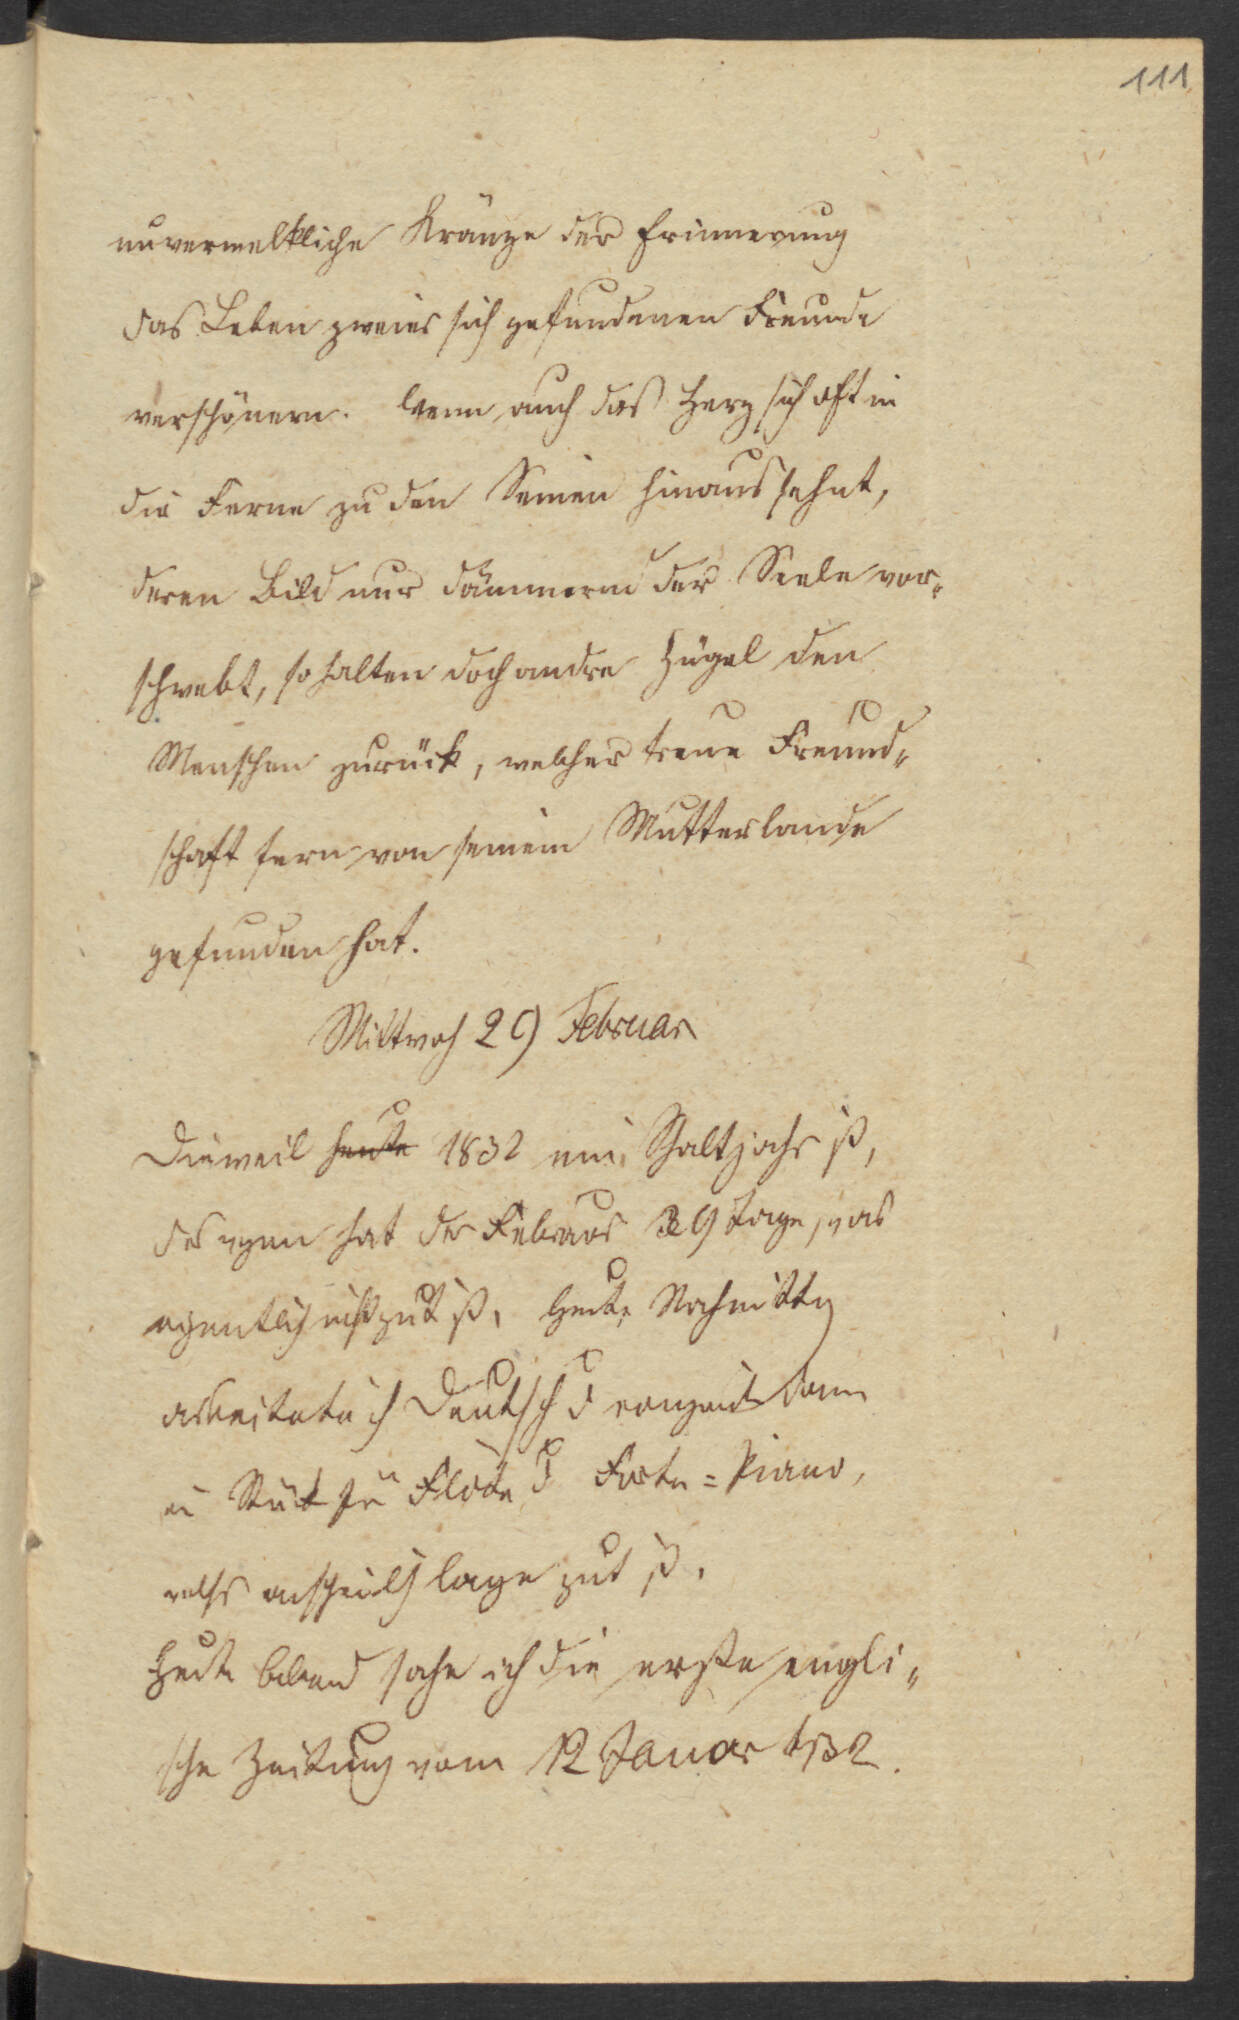 111
unverwelkliche Kränze der Erinnerung
das Leben zweier sich gefundenen Freunde
verschönern. Wenn auch das Herz sich oft in
die Ferne zu den Seinen hinaussehnt,
deren Bild nur dämmernd der Seele vor-
schwebt, so halten doch andre Zügel den
Menschen zurück, welcher treue Freund-
schaft fern von seinem Mutterlande
gefunden hat.
Mittwoch 29 Februar
Dieweil heute 1832 ein Schaltjahr ist,
deswegen hat der Februar 29 Tage, was
eigentlich nicht gut ist. Heute Nachmittag
arbeitete ich Deutsch u dann
ein Stück für Flöte u Forte=Piano,
gut ist.
Heute Abend sahe ich die erste engli-
sche Zeitung vom 12 Januar 1832.